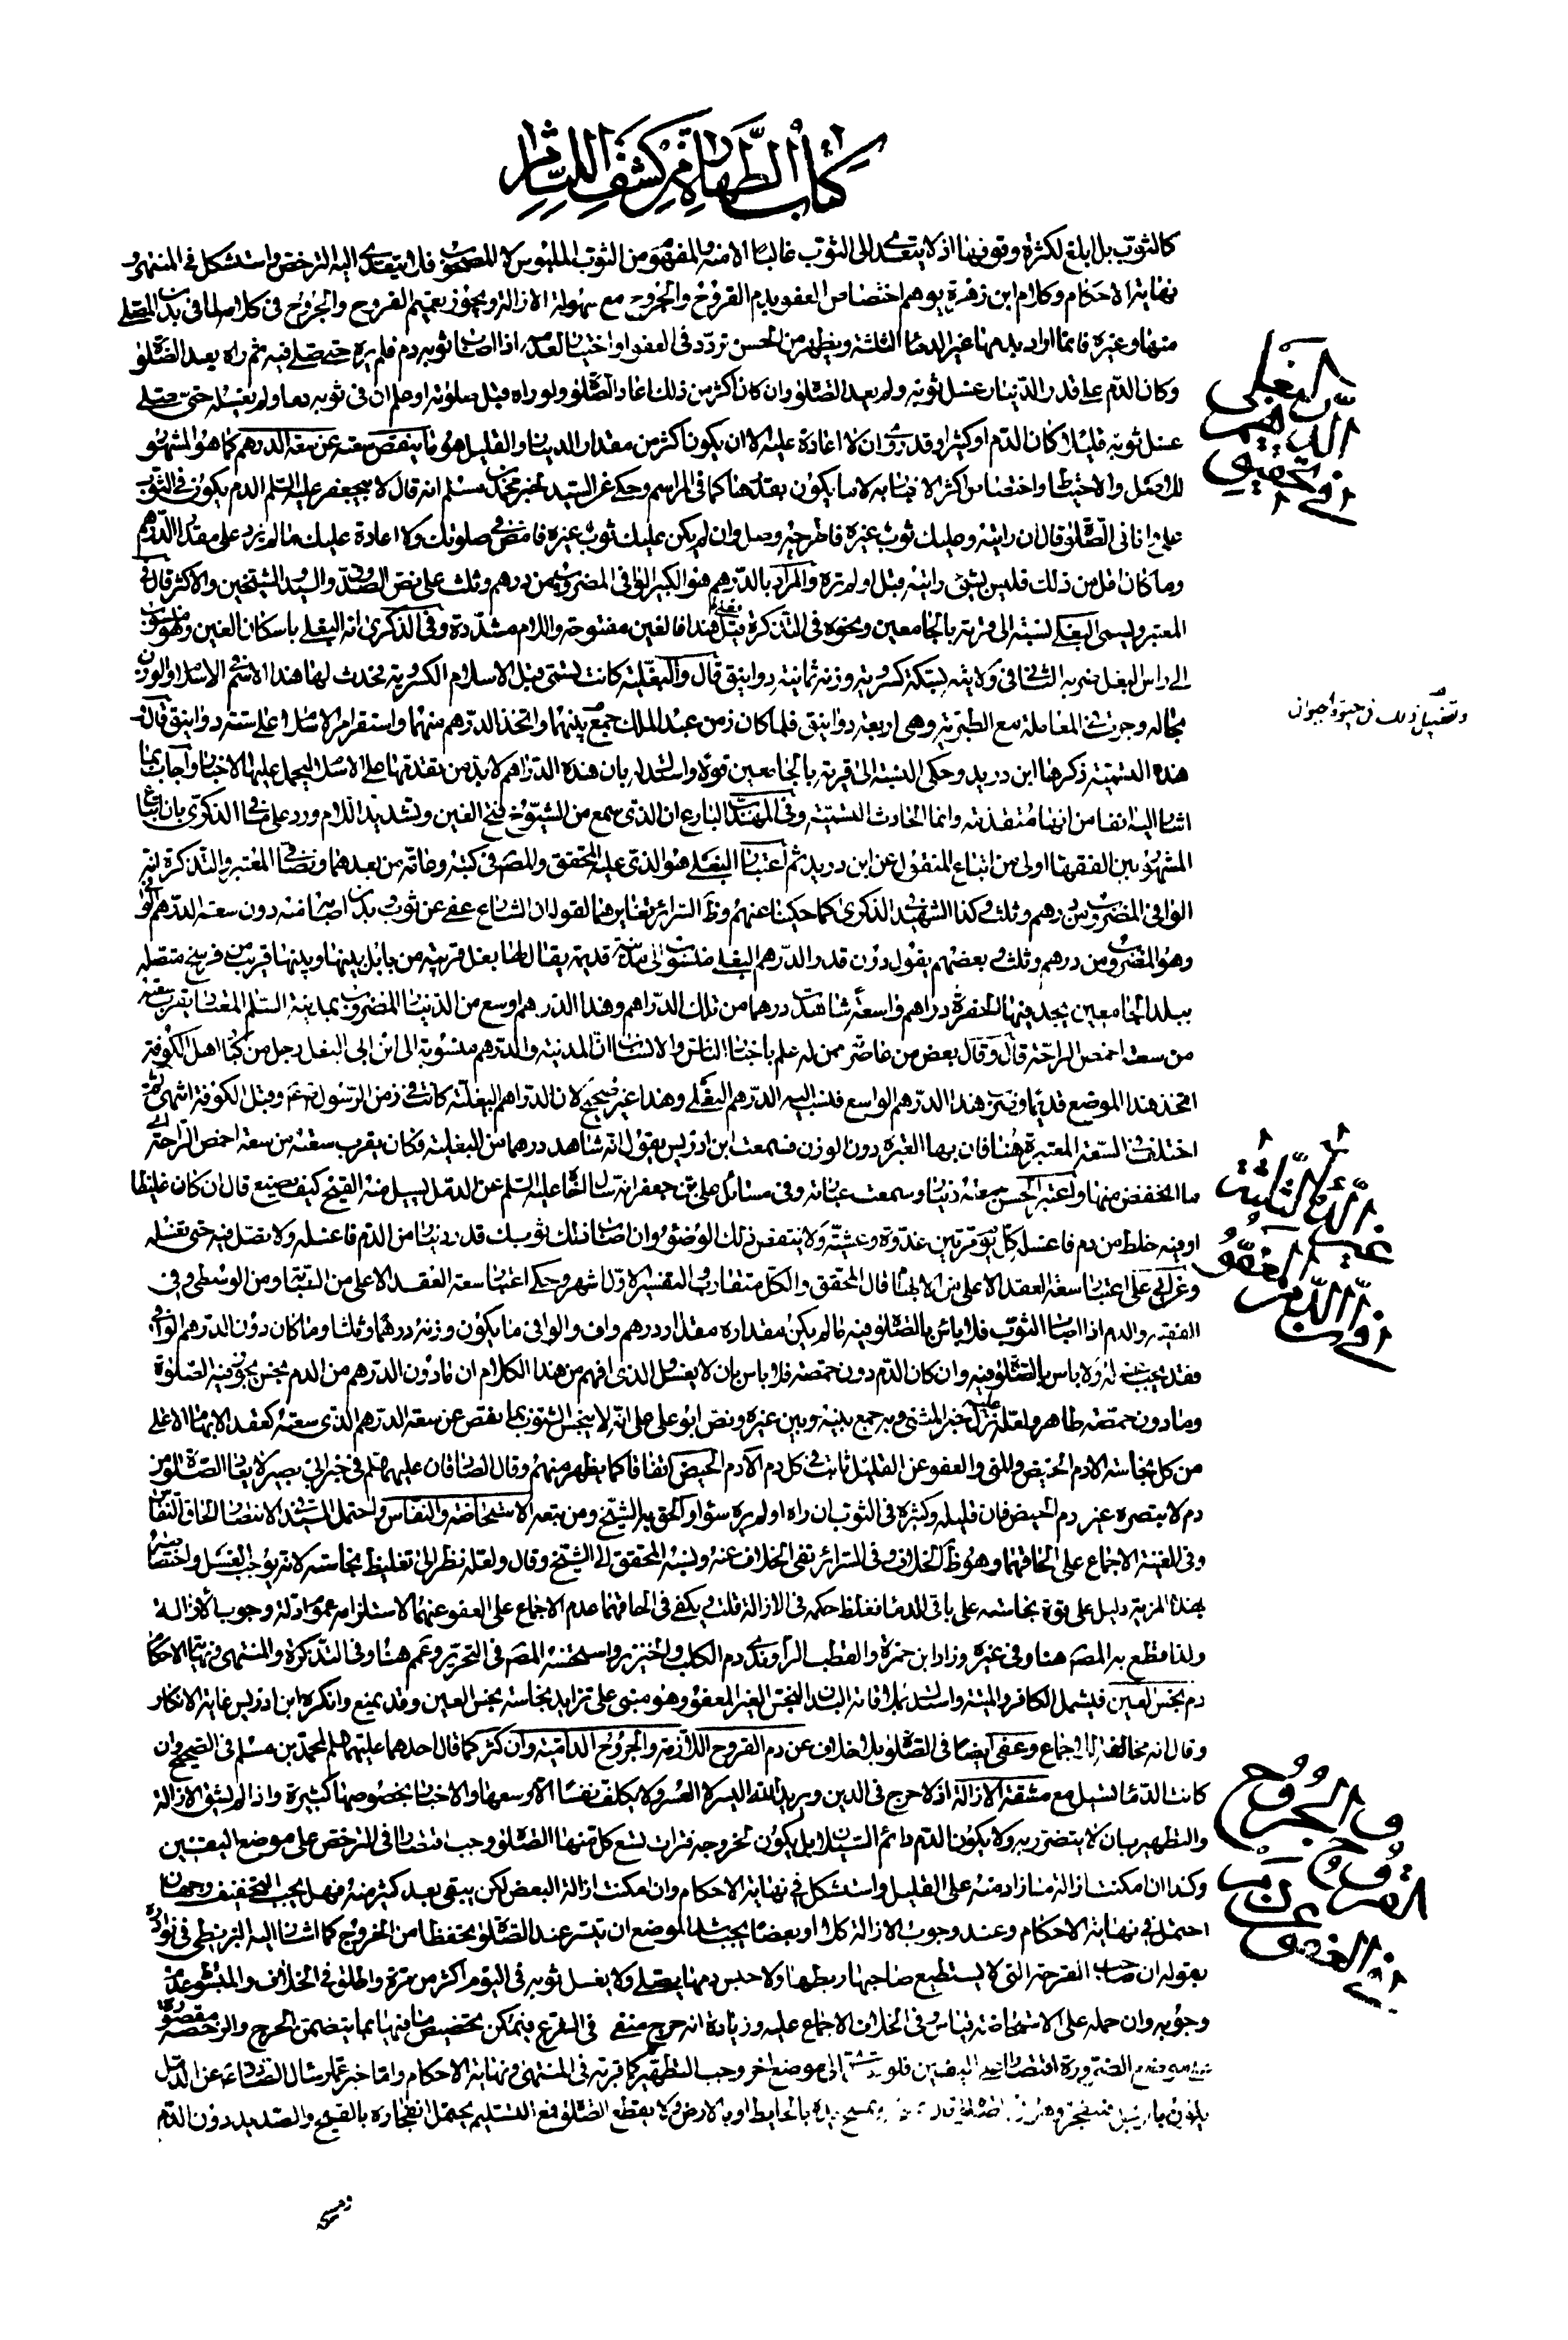 كتاب الطهارة من كشف اللثام
كالثوب بل ابلغ لكثرة وقوفها اذ لا يتعدى الى الثوب غالبا الا منه والمفهوم من الثوب الملبوس لا المصحوب فلا يتعدى اليه الترخص واستشكل في المنتهى و
نهاية الاحكام وكلام ابن زهرة يوهم اختصاص العفو بدم القروح والجروح مع سهولة الازالة ويجوز تعميم القروح والجروح في كلامه لما في بدن المصلي
منها وغيره فانما اراد بدمها غير الدماء الثلثة ويظهر من الحسن تردد في العفو او اختيار العدم اذا اصاب ثوبه دم فلم يره حتى صلى فيه ثم راه بعد الصلوة
وكان الدم على قدر الدينار غسل ثوبه ولم يعد الصلوة وان كان اكثر من ذلك اعاد الصلوة ولو راه قبل صلوته او علم ان في ثوبه دما ولم يغسله حتى صلى
غسل ثوبه قليلا كان الدم او كثيرا وقد روى ان لا اعادة عليه الا ان يكون اكثر من مقدار الدينار والقليل هو ما ينقص سعته عن سعة الدرهم كما هو المشهور
للاصل والاحتياط واختصاص اكثر الاخبار به لا بما يكون بقدره كما في المراسم وحكى عن السيد لخبر محمد بن مسلم انه قال لابي جعفر عليه السلم الدم يكون في الثوب
علي وانا في الصلوة قال ان رايته وعليك ثوب غيره فاطرحه وصل وان لم يكن عليك ثوب غيره فامض في صلوتك ولا اعادة عليك ما لم يزد على مقدار الدرهم
وما كان اقل من ذلك فليس بشئ رايته قبل او لم تره والمراد بالدرهم هو الكبير الوافي المضروب من درهم وثلث على نص الصدوق والسيد والشيخين والاكثر قال في
المعتبر ويسمى البغلي نسبة الى قرية بالجامعين ونحوه في التذكرة قيل فعلى هذا فالغين مفتوحة واللام مشددة وفي الذكرى انه البغلي باسكان الغين وهو منسوب
الى راس البغل ضربه الثاني في ولايته بسكة كسروية وزنه ثمانية دوانيق قال والبغلية كانت تسمى قبل الاسلام الكسروية فحدث لها هذا الاسم في الاسلام والوزن
بحاله وجرت في المعاملة مع الطبرية وهي اربعة دوانيق فلما كان زمن عبد الملك جمع بينهما واتخذ الدرهم منهما واستقر امر الاسلام على ستة دوانيق قال و
هذه التسمية ذكرها ابن دريد وحكى النسبة الى قرية بالجامعين قولا واستدل له بان هذه الدراهم لابد من تقدمها على الاسلام ليحمل عليها الاخبار واجاب بما
اشار اليه انفا من انها متقدمة وانما الحادث التسمية وفي المهذب البارع ان الذي سمع من الشيوخ فتح الغين وتشديد اللام ورد على ما في الذكرى بان اتباع
المشهور بين الفقهاء اولى من اتباع المنقول عن ابن دريد ثم اعتبار البغلي هو الذي عليه المحقق والمصم في كتبه وعامة من بعدهما ونصا في المعتبر والتذكرة انه
الوافي المضروب من درهم وثلث وكذا الشهيد في الذكرى كما حكينا عنهم وظ السرائر تغايرهما لقوله ان الشارع عفى عن ثوب وبدن اصابه منه دون سعة الدرهم الوافي
وهو المضروب من درهم وثلث وبعضهم يقول دون قدر الدرهم البغلي منسوب الى مدينة قديمة يقال لها بغل قريبة من بابل بينها وبينها قريب من فرسخ متصلة
ببلد الجامعين يجد فيها الحفرة دراهم واسعة شاهدت درهما من تلك الدراهم وهذا الدرهم اوسع من الدينار المضروب بمدينة السلم المعتاد يقرب سعته
من سعة اخمص الراحة قال وقال بعض من عاصر ممن له علم باخبار الناس والانساب ان المدينة والدرهم منسوبة الى ابن ابي البغل رجل من كبار اهل الكوفة
اتخذ هذا الموضع قديما وضرب هذا الدرهم الواسع فنسب اليه الدرهم البغلي وهذا غير صحيح لان الدراهم البغلية كانت في زمن الرسول وقبل الكوفة انتهى ثم
اختلف في السعة المعتبرة هنا فان بها العبرة دون الوزن فسمعت ابن ادريس يقول انه شاهد درهما من البغلية فكان يقرب سعته من سعة اخمص الراحة اي
ما انخفض منها واعتبر الحسن سعة دينار وسمعت عبارته وفي مسائل علي بن جعفر انه سال اخاه عليه السلم عن الدمل يسيل منه القيح كيف يصنع قال ان كان غليظا
او فيه خلط من دم فاغسله كل يوم مرتين غدوة وعشية ولا ينتقض ذلك الوضوء وان اصاب ثوبك قدر دينار من الدم فاغسله ولا تصل فيه حتى تغسله
وعن ابي علي اعتبار سعة العقد الاعلى من الابهام قال المحقق والكل متقارب والتفسير الاول اشهر وحكى اعتبار سعة العقد الاعلى من السبابة ومن الوسطى وفي
الفقيه والدم اذا اصاب الثوب فلا باس بالصلوة فيه ما لم يكن مقداره مقدار درهم واف والوافي ما يكون وزنه درهما وثلثا وما كان دون الدرهم الوافي
فقد يجب غسله ولا باس بالصلوة فيه وان كان الدم دون حمصة فلا باس بان لا يغسل الذي افهم من هذا الكلام ان ما دون الدرهم من الدم نجس يجوز فيه الصلوة
وما دون حمصة طاهر ولعله نزل عليه خبر المثنى وبه جمع بينه وبين غيره ونص ابو علي على انه لا ينجس الثوب بما نقص عن سعة الدرهم الذي سعته كعقد الابهام الاعلى
من كل نجاسة الا دم الحيض والمني والعفو عن القليل ثابت في كل دم الا دم الحيض اتفاقا كما يظهر منهم وقال الصادقان عليهما السلم في خبر ابي بصير لا يعاد الصلوة من
دم لا تبصره غير دم الحيض فان قليله وكثيره في الثوب ان راه او لم يره سواء والحق به الشيخ ومن تبعه الاستحاضة والنفاس واحتمل السيد في الانتصار الحاق النفاس
وفي الغنية الاجماع على الحاقهما وهو ظ الخلاف وفي السرائر نفى الخلاف عنه ونسبه المحقق الى الشيخ وقال ولعله نظر الى تغليظ نجاسته لانه يوجب الغسل واختصاصه
بهذه المزية دليل على قوة نجاسته على باقي الدماء فغلظ حكمه في الازالة قلت ويكفي في الحاقهما عدم الاجماع على العفو عنهما لاستلزامه عموم ادلة وجوب الازالة
ولذا قطع به المصم هنا وفي غيره وزاد ابن حمزة والقطب الراوندي دم الكلب والخنزير واستحسنه المصم في التحرير وعمم هنا وفي التذكرة والمنتهى ونهاية الاحكام
دم نجس العين فيشمل الكافر والميتة واستدل بملاقاته البدن النجس الغير المعفو وهو مبني على تزايد نجاسته بنجس العين وقد يمنع وانكره ابن ادريس غاية الانكار
وقال انه مخالفة للاجماع وعفى ايضا في الصلوة بلا خلاف عن دم القروح اللازمة والجروح الدامية وان كثر كما قال احدهما عليهما السلم لمحمد بن مسلم في الصحيح وان
كانت الدماء تسيل مع مشقة الازالة اذ لا حرج في الدين ويريد الله اليسر لا العسر ولا يكلف نفسا الا وسعها والاخبار بخصوصها كثيرة واذا لم يشق الازالة
والتطهير بان لا يتضرر به ولا يكون الدم دائم السيلان بل يكون لخروجه فترات تسع كل منها الصلوة وجب اقتصارا في الترخص على موضع اليقين
وكذا ان امكنت ازالة ما زاد منه على القليل واستشكل في نهاية الاحكام وان امكنت ازالة البعض لكن يبقى بعد كثير منه فهل يجب التخفيف وجهان
احتمل في نهاية الاحكام وعند وجوب الازالة كلا او بعضا يجب شد الموضع ان تيسر عند الصلوة تحفظا من الخروج كما اشار اليه البزنطي في نوادره
بقوله ان صاحب القرحة التي لا يستطيع صاحبها ربطها ولا حبس دمها يصلي ولا يغسل ثوبه في اليوم اكثر من مرة واطلق في الخلاف والمبسوط عدم
وجوبه وان حمله على الاستحاضة قياس وفي الخلاف الاجماع عليه وزيادة انه حرج منفي في الشرع فيمكن تخصيص ما فيها بما يتضمن الحرج والرخصة مقصورة
الضرورة اقتصارا على اليقين فلو الى موضع اخر وجب التطهير كما قربه في المنتهى ونهاية الاحكام واما خبر عمار سال الصادق عن الدمل
يكون بالرجل فينفجر وهو في الصلوة قال يمسح يده بالحايط او بالارض ولا يقطع الصلوة فمع التسليم يحتمل انفجاره بالقيح والصديد دون الدم
في تحقيق الدرهم البغلي
وتفصيل ذلك في حيوة الحيوان
في العفو عن دم القروح والجروح